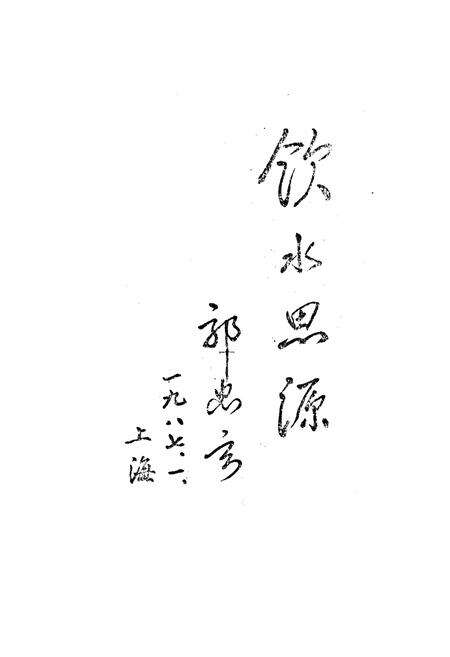 飲水思源
郭忠言
一九八七.一、
上海